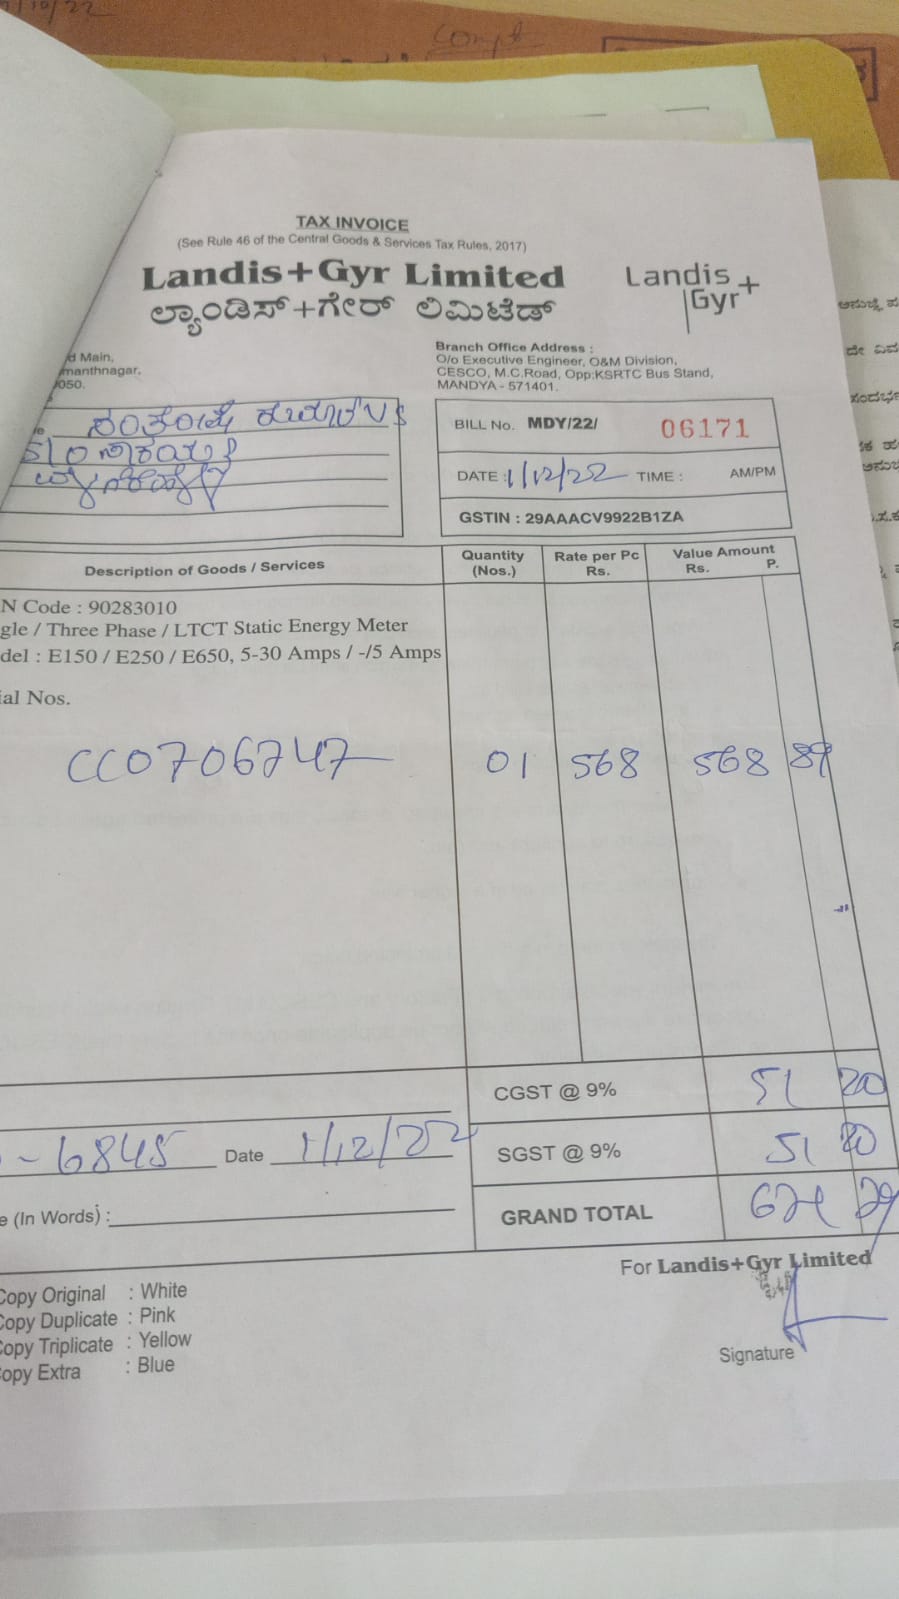 /10/22
Compt
TAX INVOICE
(See Rule 46 of the Central Goods & Services Tax Rules, 2017)
Landis+Gyr Limited
ಲ್ಯಾಂಡಿಸ್+ಗೇರ್ ಲಿಮಿಟೆಡ್
Landis+
Gyr+
d Main,
manthnagar,
050.
Branch Office Address :
O/o Executive Engineer, O&M Division,
CESCO, M.C.Road, Opp:KSRTC Bus Stand,
MANDYA - 571401.
BILL No. MDY/22/ 06171
DATE : 1/12/22 TIME : AM/PM
GSTIN : 29AAACV9922B1ZA
Description of Goods / Services Quantity (Nos.) Rate per Pc Rs. Value Amount Rs. P.
N Code : 90283010
gle / Three Phase / LTCT Static Energy Meter
del : E150 / E250 / E650, 5-30 Amps / -/5 Amps
ial Nos.
CC0706747 01 568 568 89
CGST @ 9% 51 20
- 6845 Date 1/12/22 SGST @ 9% 51 20
e (In Words) : GRAND TOTAL 671 29
For Landis+Gyr Limited
Copy Original : White
Copy Duplicate : Pink
Copy Triplicate : Yellow
Copy Extra : Blue
Signature